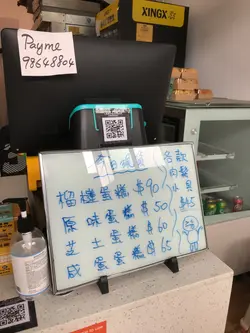 Payme
98648804
XINGX
今日現貨
榴槤蛋糕 $90
原味蛋糕 $50
芝士蛋糕 $60
咸蛋蛋糕 $65
各款
肉鬆
貝
$45